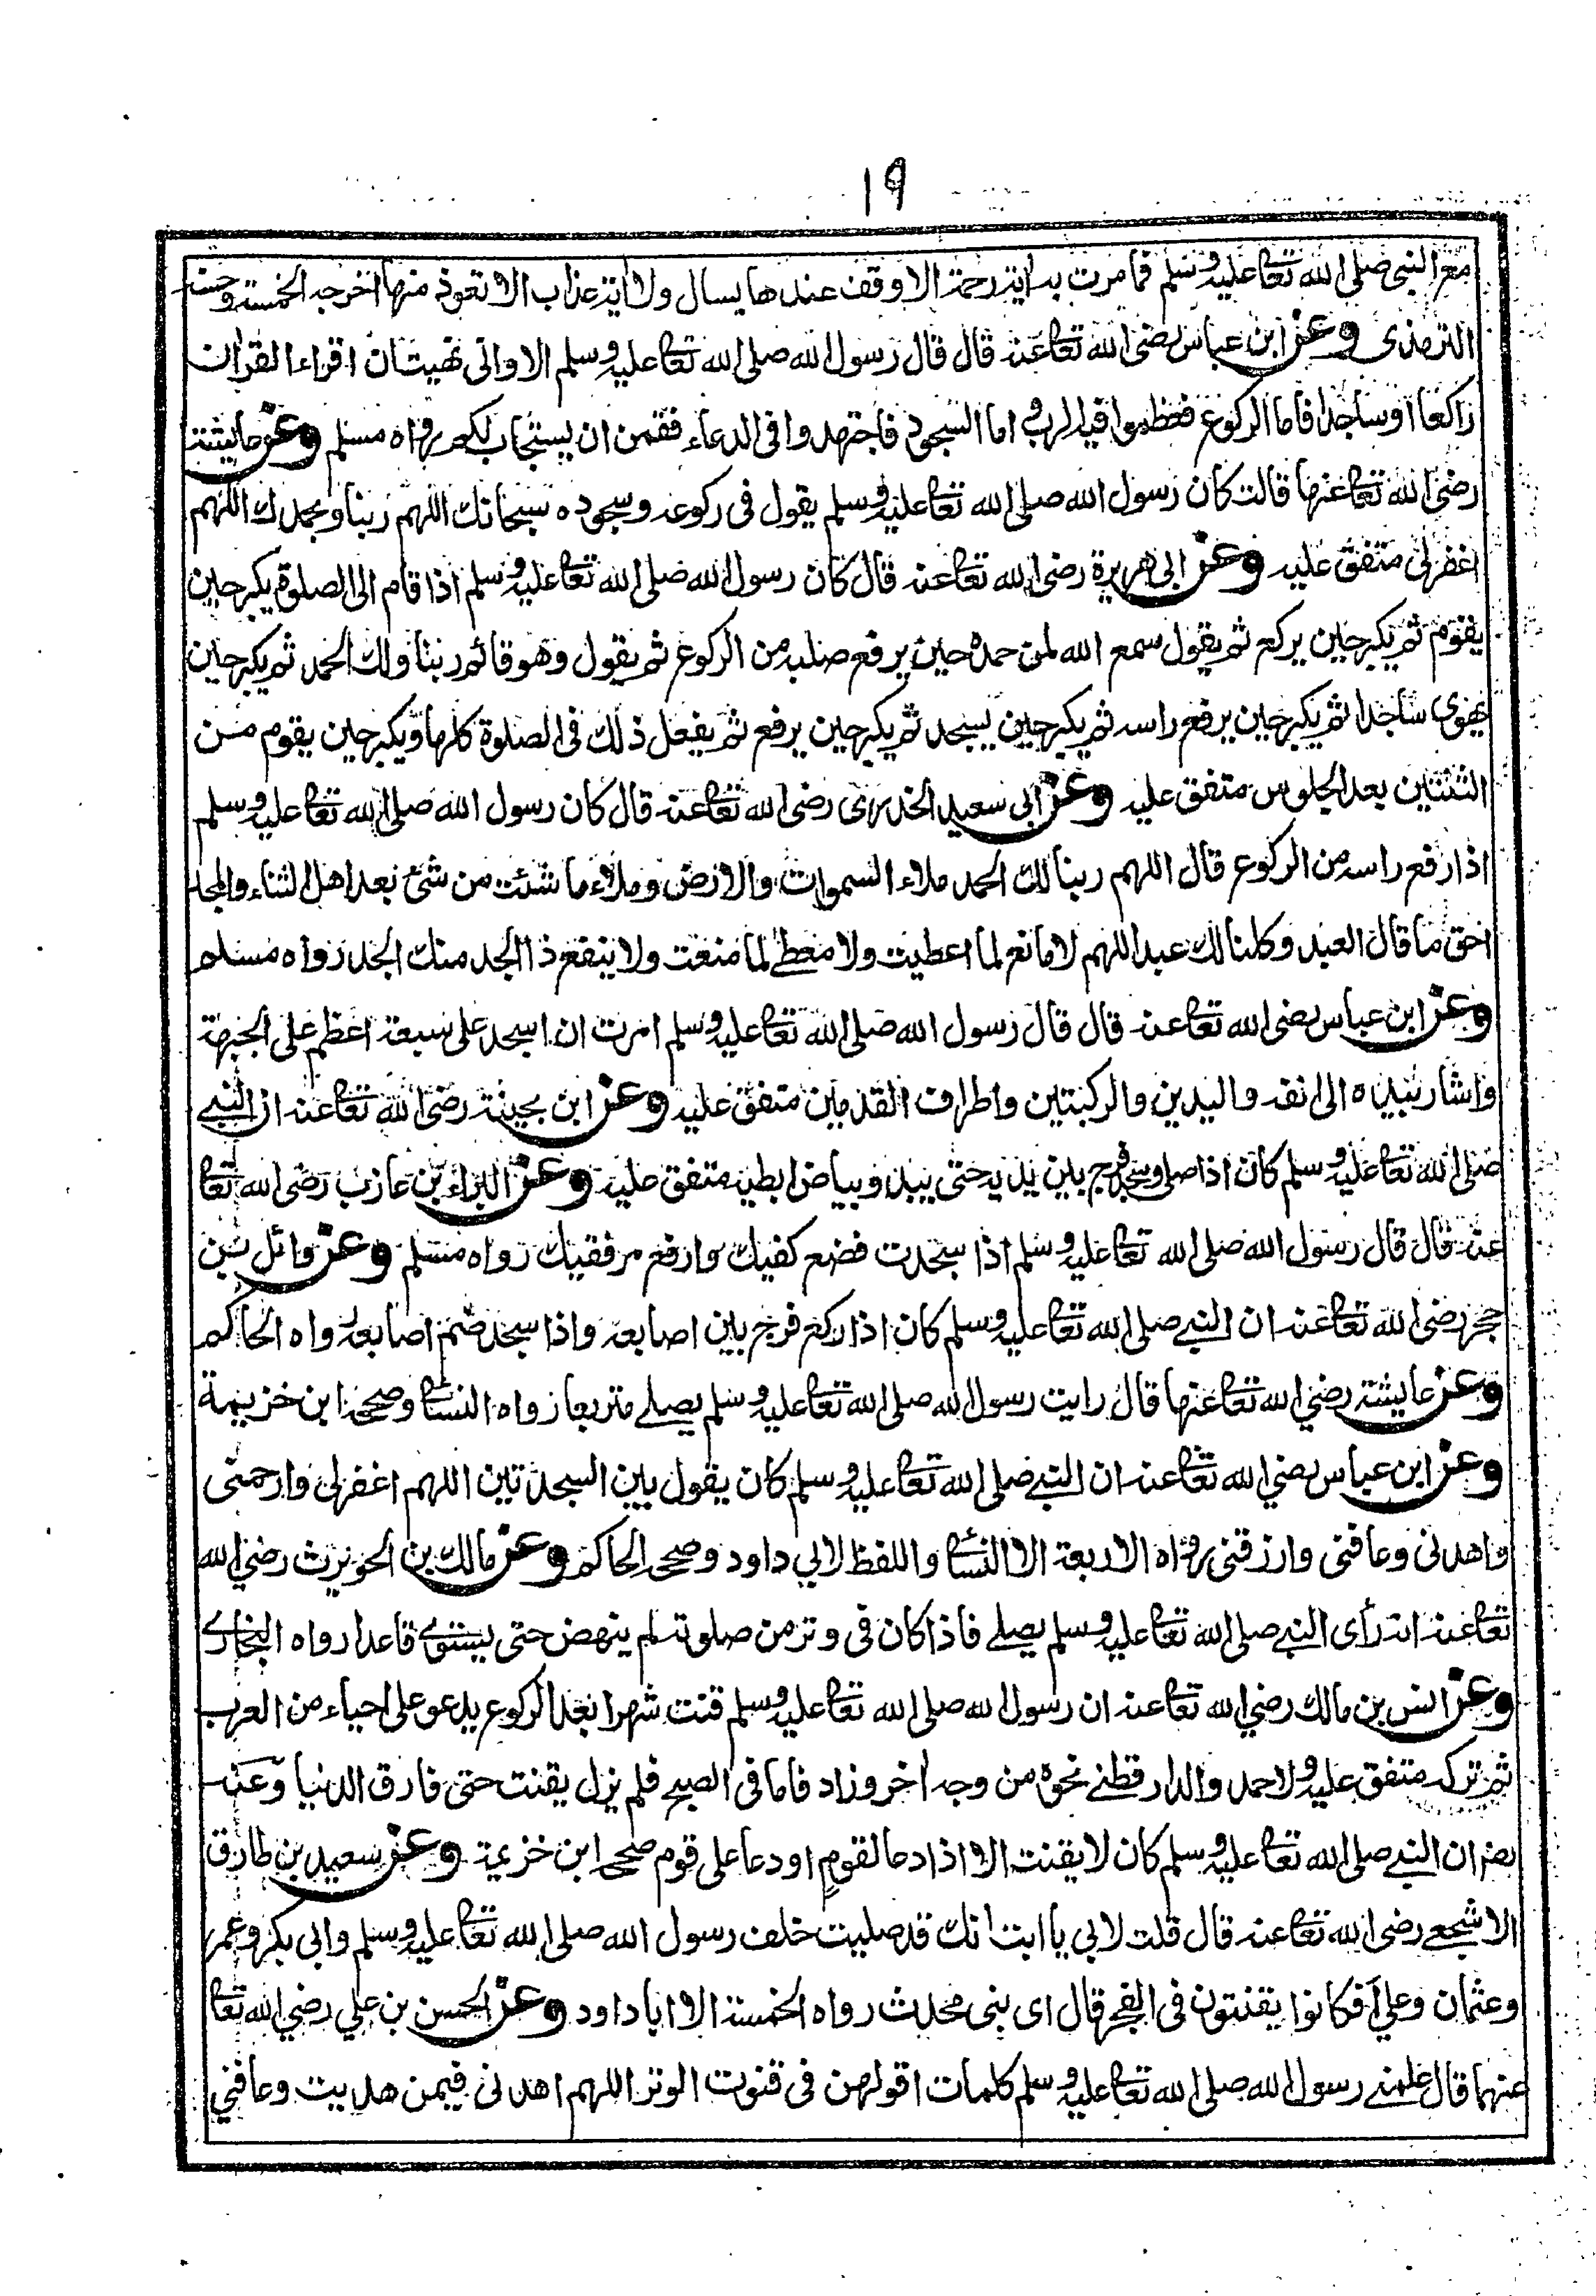 ١٩
مع النبى صلى الله تعا عليه وسلم فما مرت به اية رحمة الا وقف عندها يسال ولا اية عذاب الا تعوذ منها اخرجه الخمسة وحسنه
الترمذى وعن ابن عباس رضى الله تعا عنه قال قال رسول الله صلى الله تعا عليه وسلم الا وانى نهيت ان اقراء القران
راكعا او ساجدا فاما الركوع فعظموا فيه الرب و اما السجود فاجتهدوا فى الدعاء فقمن ان يستجاب لكم رواه مسلم وعن عايشة
رضى الله تعا عنها قالت كان رسول الله صلى الله تعا عليه وسلم يقول فى ركوعه وسجوده سبحانك اللهم ربنا وبحمدك اللهم
اغفرلى متفق عليه وعن ابى هريرة رضى الله تعا عنه قال كان رسول الله صلى الله تعا عليه وسلم اذا قام الى الصلوة يكبر حين
يقوم ثم يكبر حين يركع ثم يقول سمع الله لمن حمده حين يرفع صلبه من الركوع ثم يقول وهو قائم ربنا ولك الحمد ثم يكبر حين
يهوى ساجدا ثم يكبر حين يرفع راسه ثم يكبر حين يسجد ثم يكبر حين يرفع ثم يفعل ذلك فى الصلوة كلها ويكبر حين يقوم من
الثنتين بعد الجلوس متفق عليه وعن ابى سعيد الخدرى رضى الله تعا عنه قال كان رسول الله صلى الله تعا عليه وسلم
اذا رفع راسه من الركوع قال اللهم ربنا لك الحمد ملاء السموات والارض وملاء ما شئت من شئ بعد اهل الثناء والمجد
احق ما قال العبد وكلنا لك عبد اللهم لا مانع لما اعطيت ولا معطے لما منعت ولا ينفع ذا الجد منك الجد رواه مسلم
وعن ابن عباس رضى الله تعا عنه قال قال رسول الله صلى الله تعا عليه وسلم امرت ان اسجد على سبعة اعظم على الجبهة
واشار بيده الى انفه واليدين والركبتين واطراف القدمين متفق عليه وعن ابن بحينة رضى الله تعا عنه ان النبے
صلى الله تعا عليه وسلم كان اذا صلى وسجد فرج بين يديه حتى يبدو بياض ابطيه متفق عليه وعن البراء بن عازب رضى الله تعا
عنه قال قال رسول الله صلى الله تعا عليه وسلم اذا سجدت فضع كفيك وارفع مرفقيك رواه مسلم وعن وائل بن
حجر رضى الله تعا عنه ان النبے صلى الله تعا عليه وسلم كان اذا ركع فرج بين اصابعه واذا سجد ضم اصابعه رواه الحاكم
وعن عايشة رضي الله تعا عنها قال رايت رسول الله صلى الله تعا عليه وسلم يصلے متربعا رواه النسائ وصححه ابن خزيمة
وعن ابن عباس رضي الله تعا عنه ان النبے صلى الله تعا عليه وسلم كان يقول بين السجدتين اللهم اغفرلى وارحمنى
واهدنى وعافنى وارزقنى رواه الاربعة الا النسائ واللفظ لابي داود وصححه الحاكم وعن مالك بن الحويرث رضي الله
تعا عنه انه رأى النبے صلى الله تعا عليه وسلم يصلے فاذا كان فى وتر من صلوته لم ينهض حتى يستوے قاعدا رواه البخارے
وعن انس بن مالك رضي الله تعا عنه ان رسول الله صلى الله تعا عليه وسلم قنت شهرا بعد الركوع يدعو على احياء من العرب
ثم تركه متفق عليه ولاحمد والدارقطنے نحوه من وجه اخر وزاد فاما فى الصبح فلم يزل يقنت حتى فارق الدنيا وعنه
رض ان النبے صلى الله تعا عليه وسلم كان لا يقنت الا اذا دعا لقومٍ او دعا على قوم صححه ابن خزيمة وعن سعيد بن طارق
الاشجعے رضى الله تعا عنه قال قلت لابي يا ابت انك قد صليت خلف رسول الله صلى الله تعا عليه وسلم وابى بكر وعمر
وعثمان وعلي أفكانوا يقنتون فى الفجر قال اى بنى محدث رواه الخمسة الا ابا داود وعن الحسن بن علي رضي الله تعا
عنهما قال علمنے رسول الله صلى الله تعا عليه وسلم كلمات اقولهن فى قنوت الوتر اللهم اهدنى فيمن هديت وعافني